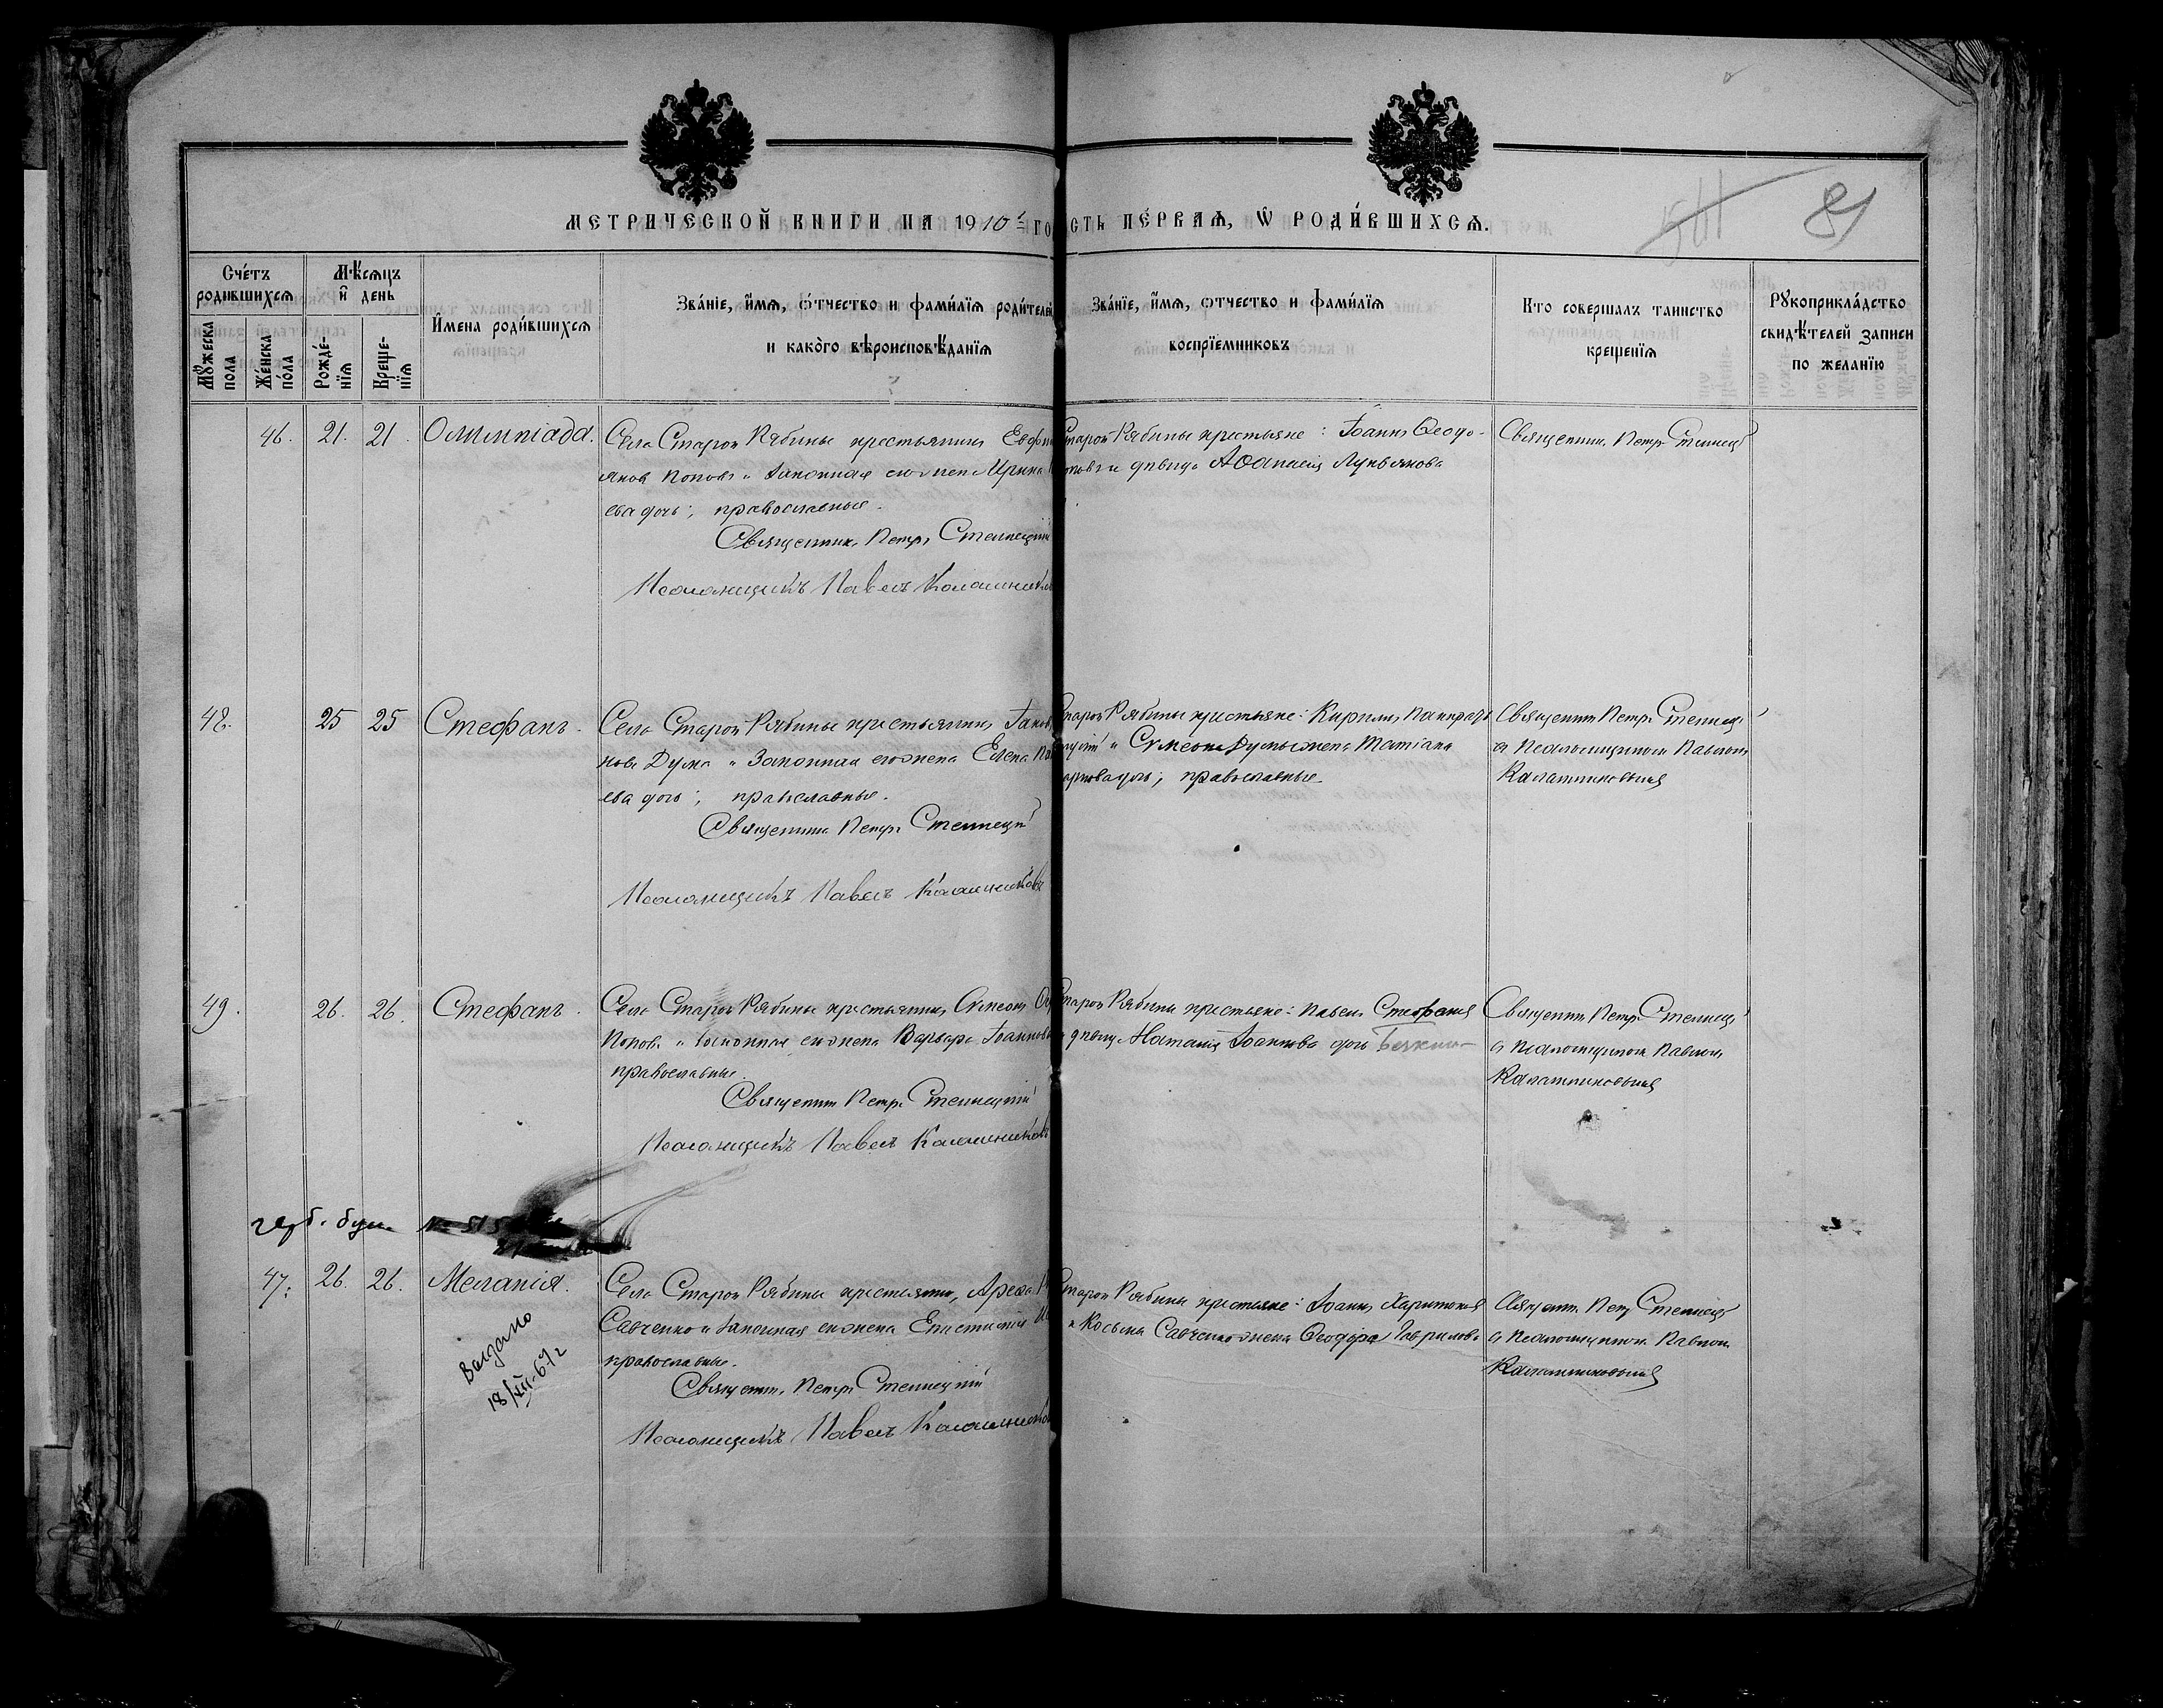 МЕТРИЧЕСКОЙ КНИГИ НА 1910 ГО
СТЬ ПЕ́РВАѦ, Ѿ РОДИ́ВШИХСѦ.
81
Сче́тъ родившихсѧ
Мѣ́сѧцъ и҆ день
Мꙋ́жеска пола
Же́нска по́ла
Рожде́нїѧ
Креще́нїѧ
И҆мена роди́вшихсѧ
Зва́нїе, и҆́мѧ, ѻ҆́тчество и фами́лїѧ роди́телей
и како́го вѣроисповѣ́данїѧ
Зва́нїе, и҆́мѧ, ѻтчество и фами́лїѧ
воспрїемниковъ
Кто соверша́лъ таинство
крещенїѧ
Рꙋкоприкла́дство
свидѣ́телей записи
по желанїю
46. 21. 21. Олимпіада.
Села Старой Рябины крестьянинъ
Поповъ и законная его жена Ирина
ева дочь; православные.
Священникъ Петръ Стеллецкій
Псаломщикъ Павелъ Калашников
Старой Рябины крестьяне: Іоаннъ Ѳеодо-
и дѣвица Аѳанасія Лукьянова
Священникъ Петръ Стеллецкій
48. 25 25 Стефанъ.
Села Старой Рябины крестьянинъ
Дума и законная его жена Елена
ева дочь; православные.
Священникъ Петръ Стеллецкій
Псаломщикъ Павелъ Калашниковъ
Старой Рябины крестьяне: Кириллъ
и Симеона Думы жена Татіана
дочь; православные.
Священникъ Петръ Стеллецкій
съ псаломщикомъ Павломъ
Калашниковымъ
49. 26. 26. Стефанъ.
Села Старой Рябины крестьянинъ Симеонъ
Поповъ и законная его жена Варвара Іоаннова
православные.
Священникъ Петръ Стеллецкій
Псаломщикъ Павелъ Калашниковъ
Старой Рябины крестьяне: Павелъ Стефановъ
дѣвица Наталія Іоаннова дочь
Священникъ Петръ Стеллецкій
съ псаломщикомъ Павломъ
Калашниковымъ
герб. бум. № 515
47. 26. 26. Меланія.
Выдано
18/XII-67г
Села Старой Рябины крестьянинъ Арефа
Савченко и законная его жена Епистимія
православные.
Священникъ Петръ Стеллецкій
Псаломщикъ Павелъ Калашников
Старой Рябины крестьяне: Іоаннъ Харитоновъ
и Косьмы Савченко жена Ѳеодора Гаврилова
Священникъ Петръ Стеллецкій
съ псаломщикомъ Павломъ
Калашниковымъ